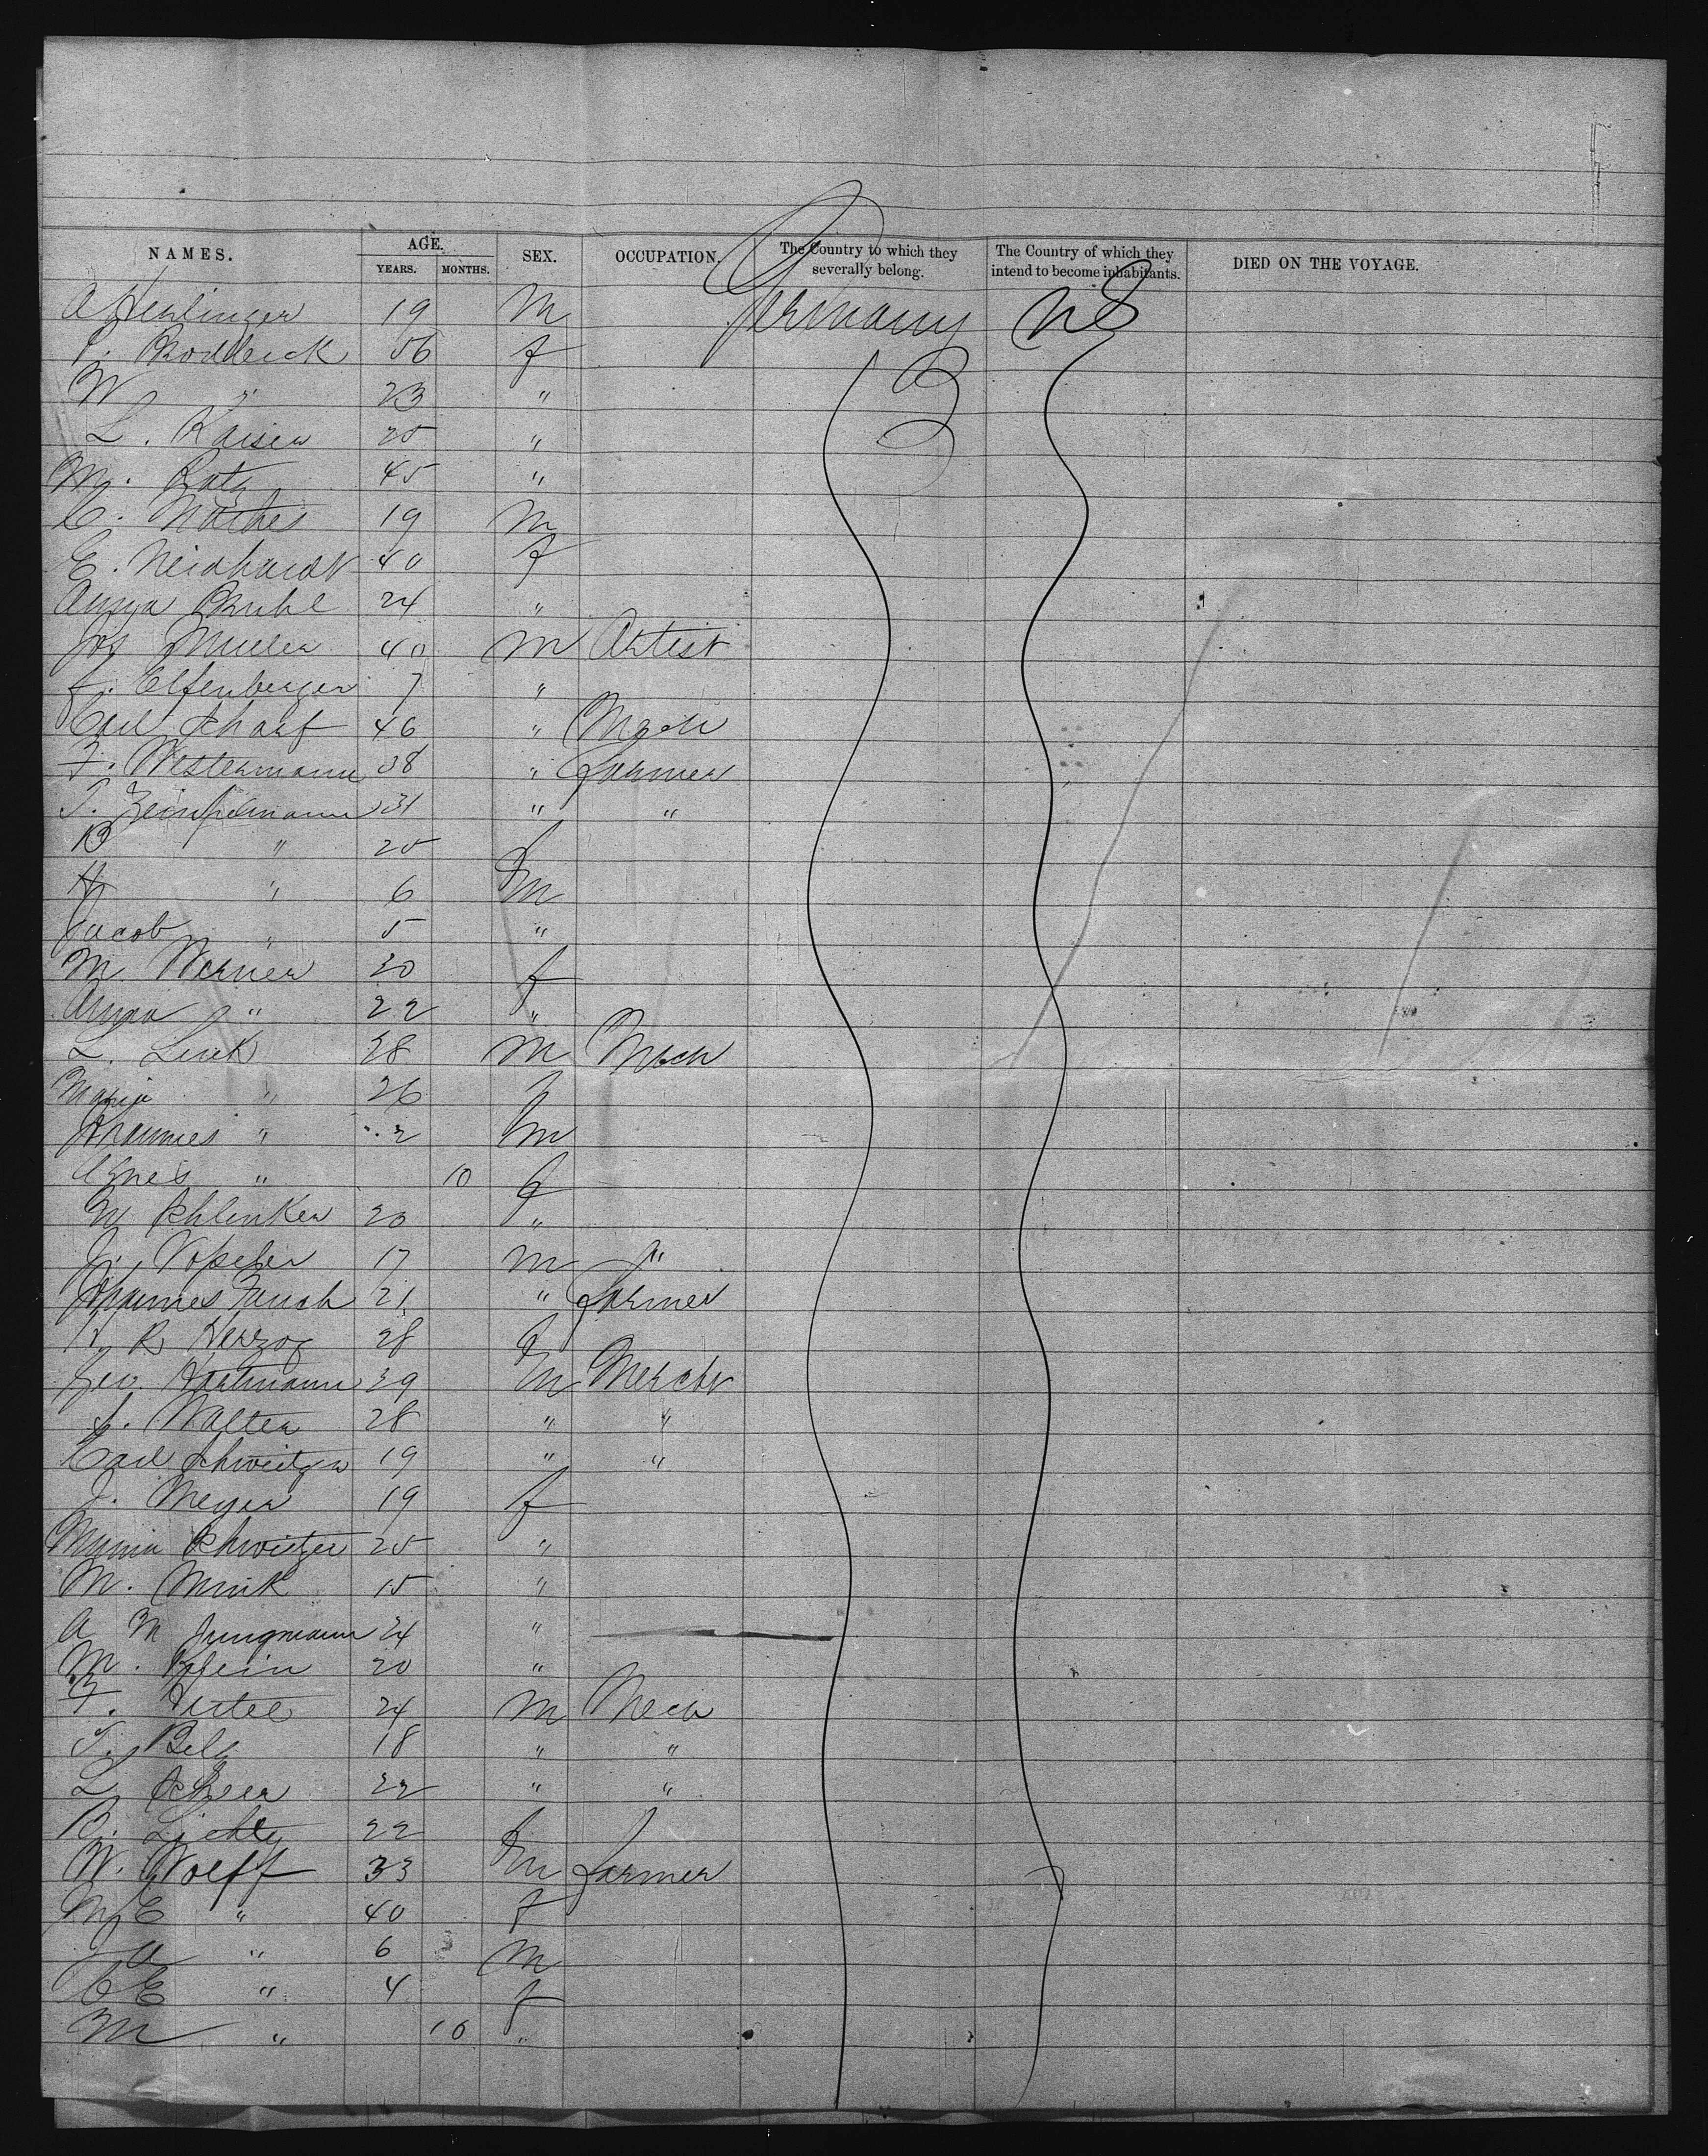 NAMES. AGE. YEARS. MONTHS. SEX. OCCUPATION. The Country to which they severally belong. The Country of which they intend to become inhabitants. DIED ON THE VOYAGE.
A Henlinger 19 M Germany US
P. Rodderick 56 f
W " 23 "
L. Kaiser 25 "
M. Katz 45 "
C. Mathes 19 M
E. Neidhardt 40 f
Anna Ruhl 24 "
Jos Muller 40 M Artist
f. Elfenberger 7 "
Carl Scharf 46 " Mech
F. Westermann 38 " Farmer
T. Zeimpelmann 31 " "
B " 25 f
H " 6 M
Jacob " 5 "
M. Werner 30 f
Anna " 22 "
L. Link 28 M Mech
Maria " 26 f
Johannes " 2 M
Agnes " 10 f
M Schlenker 20 "
J. Vopeler 17 M "
Johannes Fauch 21 " Farmer
K R Herzog 28 f
Geo. Hartmann 39 M Mercht
S. Walter 28 " "
Carl Schweitzer 19 " "
J. Meyer 19 f
Minna Schweitzer 25 "
M. Munk 15 "
A M Jungmann 24 "
M. Klein 20 "
F. Hertel 24 M Mech
T. Belz 18 " "
L. Scheer 22 " "
B. Lichty 22 f
W. Wolff 33 M Farmer
M E " 40 f
J A " 6 M
C E " 4 f
M " 10 "